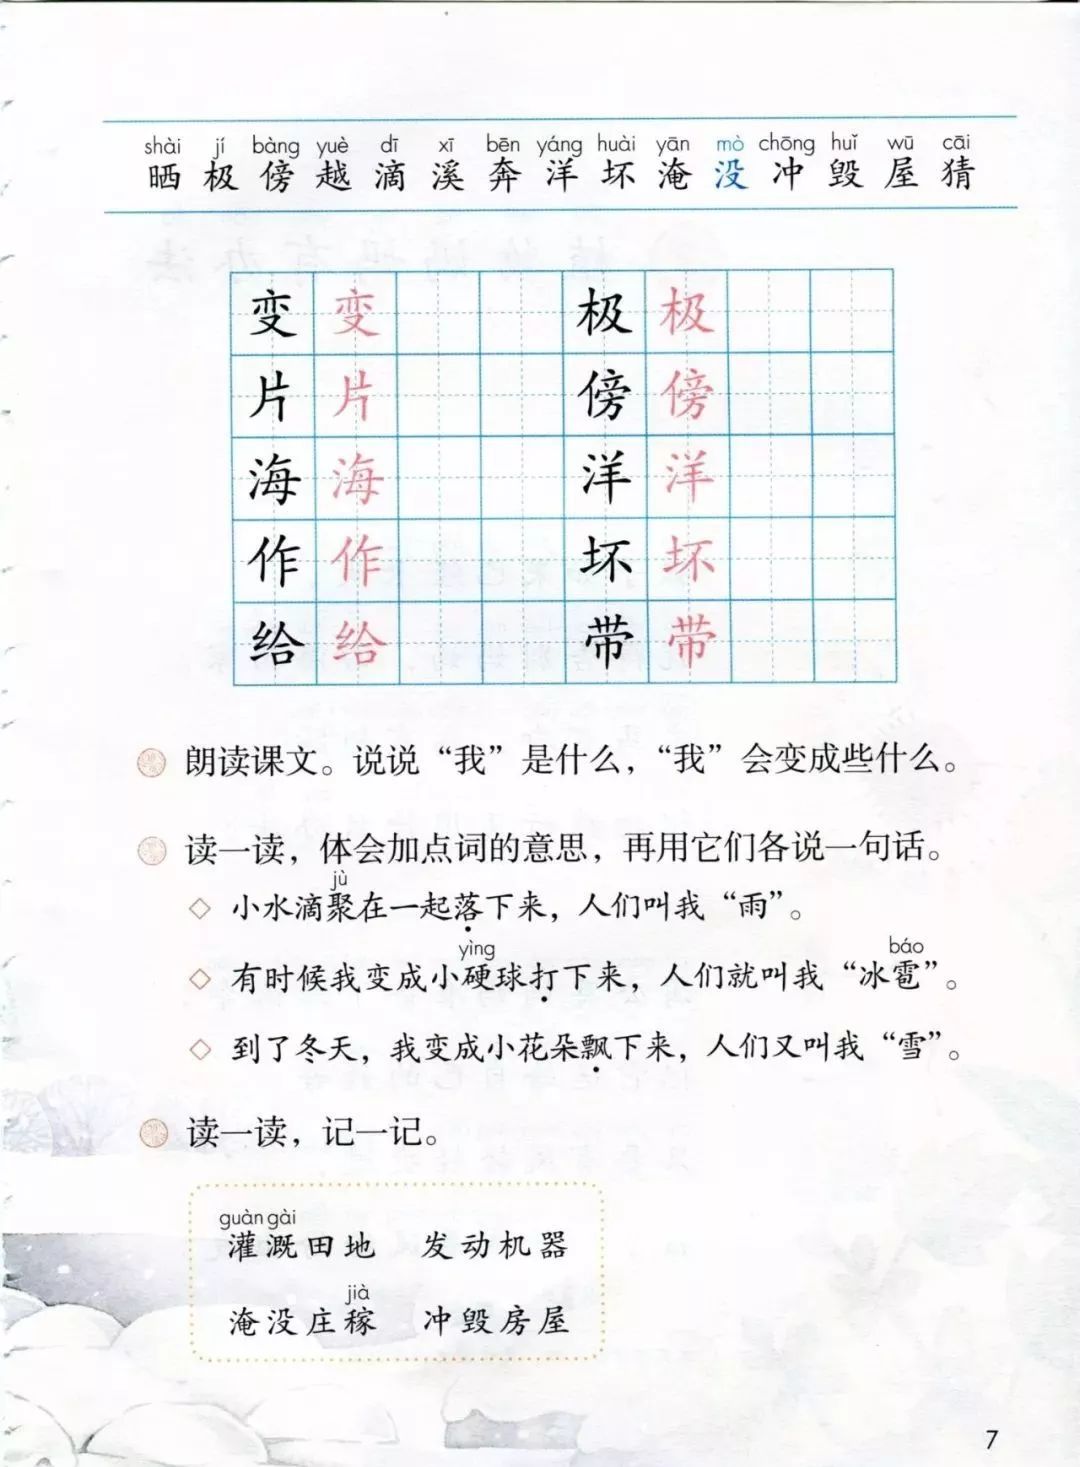 shài jí bàng yuè dī xī bēn yáng huài yān mò chōng huǐ wū cāi
晒 极 傍 越 滴 溪 奔 洋 坏 淹 没 冲 毁 屋 猜
变 变 极 极
片 片 傍 傍
海 海 洋 洋
作 作 坏 坏
给 给 带 带
朗读课文。说说“我”是什么，“我”会变成些什么。
读一读，体会加点词的意思，再用它们各说一句话。
jù
◇ 小水滴聚在一起落下来，人们叫我“雨”。
yìng báo
◇ 有时候我变成小硬球打下来，人们就叫我“冰雹”。
◇ 到了冬天，我变成小花朵飘下来，人们又叫我“雪”。
读一读，记一记。
guàn gài
灌溉田地 发动机器
jià
淹没庄稼 冲毁房屋
7